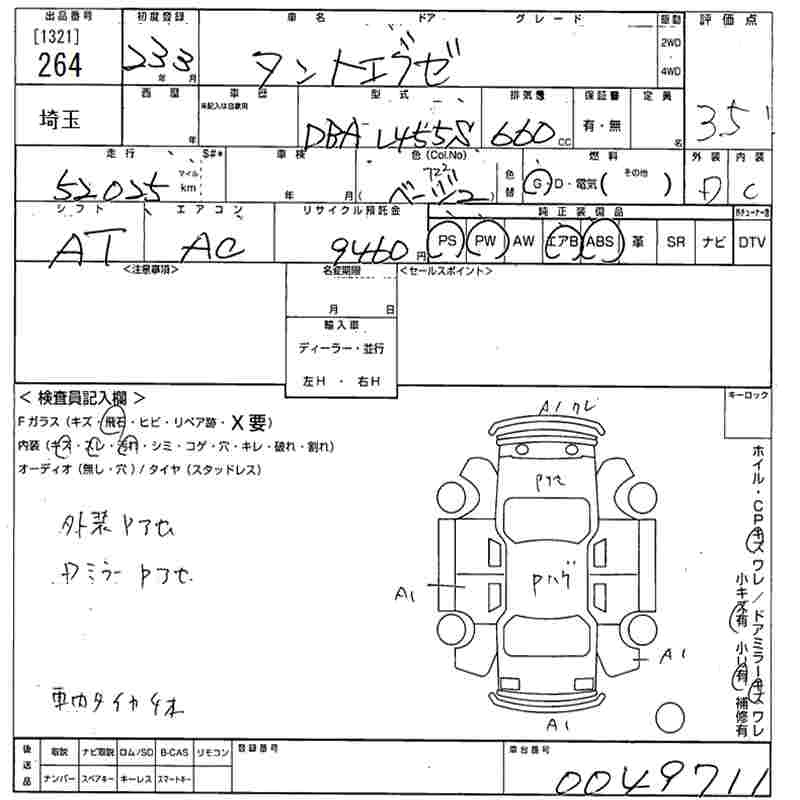 出品番号 初度登録 車名 ドア グレード 駆動 評価点
[1321] 2WD
264 233 年 月 タントエグゼ 4WD 3.5
埼玉 西暦 年 車歴 未記入は自家用 型式 排気量 保証書 定員
DBA L455S 660 cc 有・無 名
走行 S#* 車検 色(Col.No) 色替 燃料 外装 内装
52025 マイル km 年 月 ( ベージュ T22 ) G・D・電気( その他 ) D C
シフト エアコン リサイクル預託金 純正装備品
AT AC 9460 円 PS PW AW エアB ABS 革 SR ナビ DTV
<注意事項> 名変期限 <セールスポイント>
月 日
輸入車
ディーラー・並行
左H ・ 右H
<検査員記入欄> キーロック
Fガラス(キズ・飛石・ヒビ・リペア跡・X要)
内装(キズ・スレ・汚れ・シミ・コゲ・穴・キレ・破れ・割れ)
オーディオ(無し・穴)/タイヤ(スタッドレス)
A1 ワレ
Pアセ
外装Pアセ
Dミラー Pアセ
Pハゲ
A1
A1
A1
車内タイヤ4本
ホイル・CPキズワレ/ドアミラーキズワレ
小キズ有 小凹有 補修有
後送品 取説 ナビ取説 ロム/SD B-CAS リモコン 登録番号 車台番号
ナンバー スペアキー キーレス スマートキー 0049711